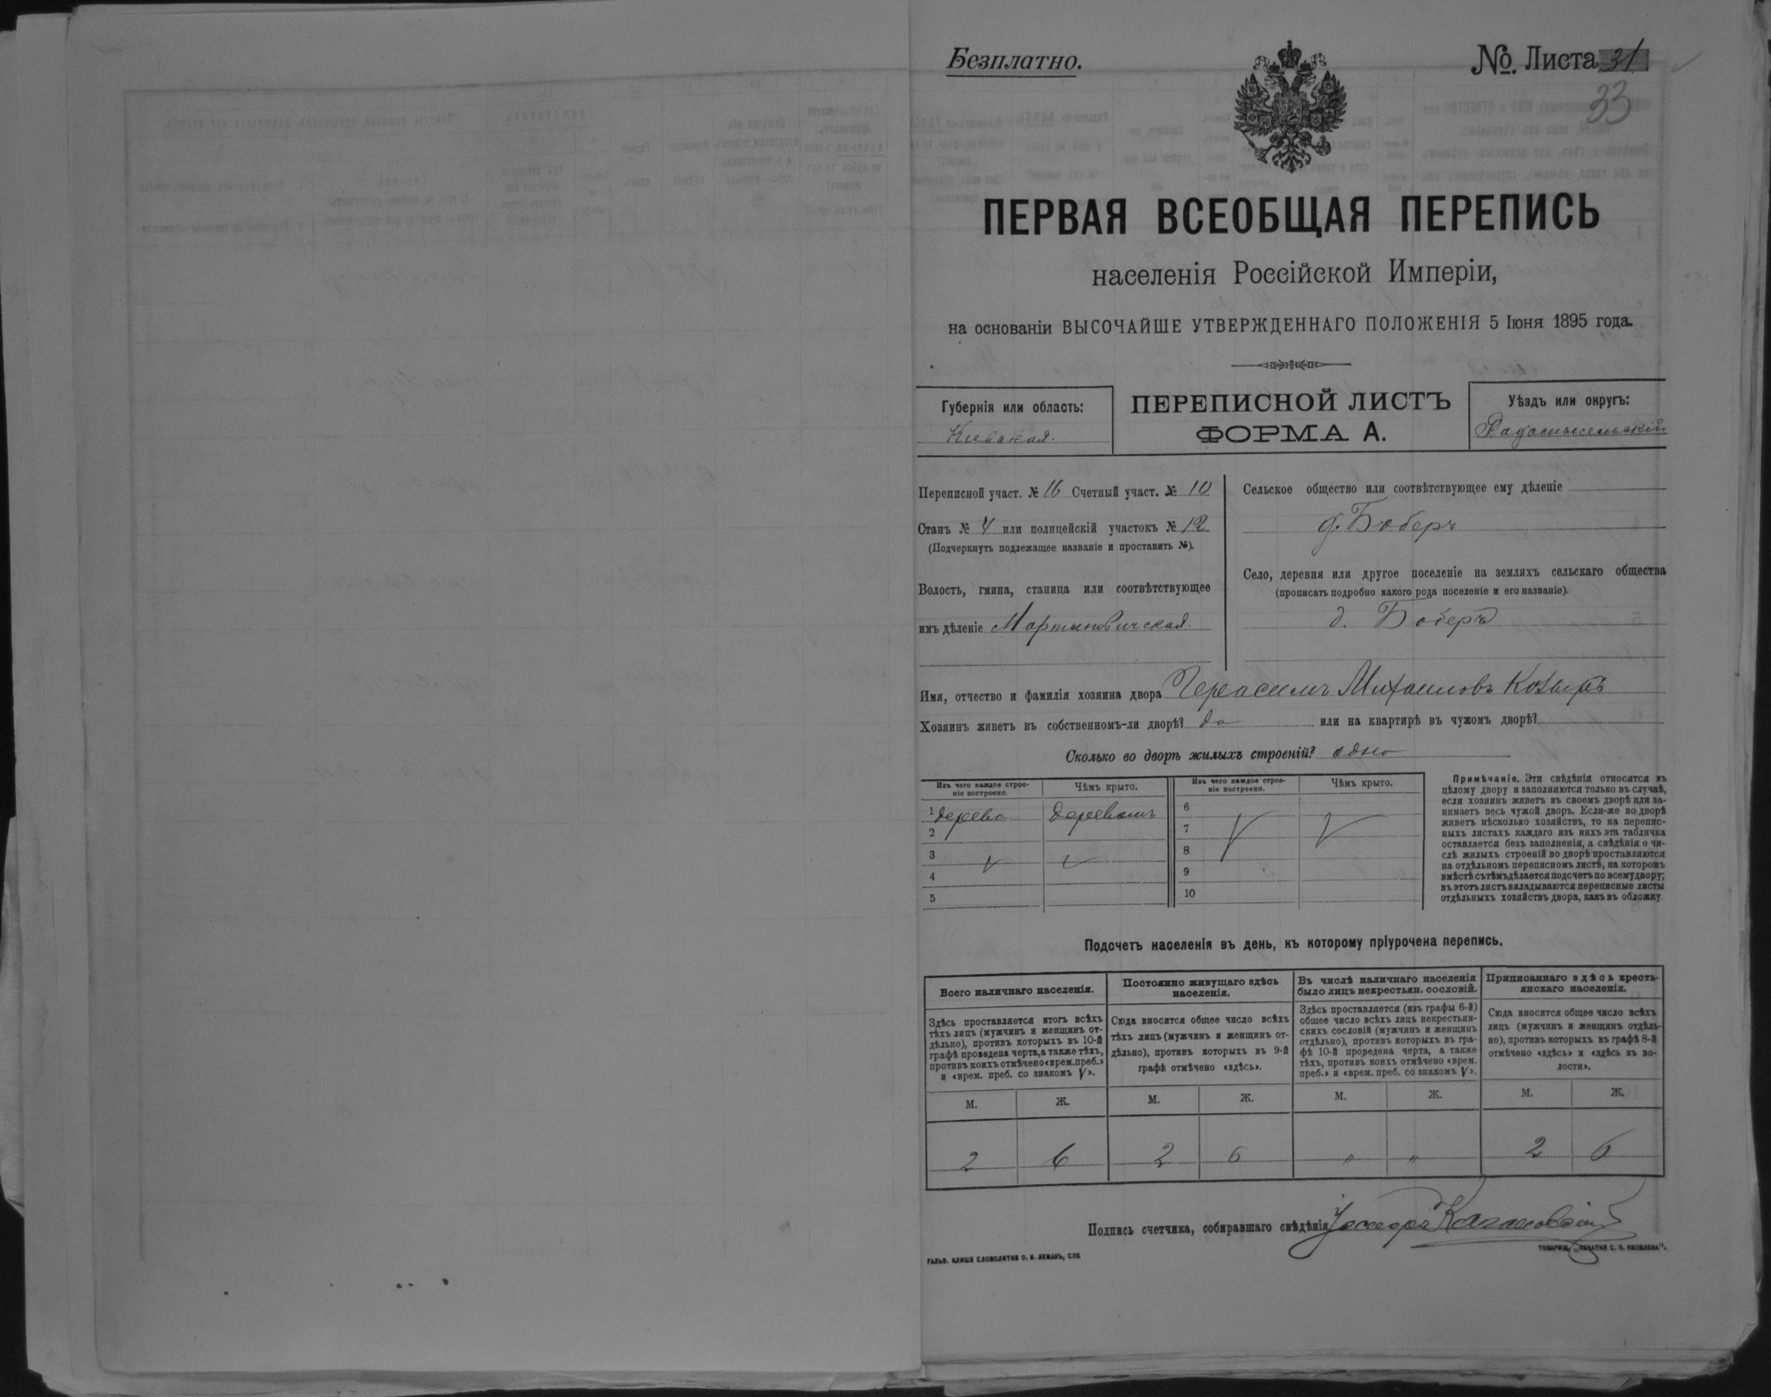 Безплатно.
№. Листа 31
33
ПЕРВАЯ ВСЕОБЩАЯ ПЕРЕПИСЬ
населенія Россійской Имперіи,
на основаніи ВЫСОЧАЙШЕ УТВЕРЖДЕННАГО ПОЛОЖЕНІЯ 5 Іюня 1895 года.
Губернія или область:
Киевская.
ПЕРЕПИСНОЙ ЛИСТЪ
ФОРМА А.
Уѣздъ или округъ:
Радомысльскій
Переписной участ. № 16 Счетный участ. № 10
Станъ № 4 или полицейскій участокъ № 12
(Подчеркнуть подлежащее названіе и проставить №).
Волость, гмина, станица или соотвѣтствующее
имъ дѣленіе Мартиновичская
Сельское общество или соотвѣтствующее ему дѣленіе
д. Боберъ
Село, деревня или другое поселеніе на земляхъ сельскаго общества
(прописать подробно какого рода поселеніе и его названіе).
д. Боберъ
Имя, отчество и фамилія хозяина двора Герасимъ Михаиловъ
Хозяинъ живетъ въ собственномъ-ли дворѣ? да или на квартирѣ въ чужомъ дворѣ?
Сколько во дворѣ жилыхъ строеній? одно
Изъ чего каждое строе-
ніе построено.
Чѣмъ крыто.
Изъ чего каждое строе-
ніе построено.
Чѣмъ крыто.
1 дерево деревомъ
2
3
4
5
6
7
8
9
10
Примѣчаніе. Эти свѣдѣнія относятся къ
цѣлому двору и заполняются только въ случаѣ,
если хозяинъ живетъ въ своемъ дворѣ или за-
нимаетъ весь чужой дворъ. Если-же во дворѣ
живетъ нѣсколько хозяйствъ, то на перепис-
ныхъ листахъ каждаго изъ нихъ эта табличка
оставляется безъ заполненія, а свѣдѣнія о чи-
слѣ жилыхъ строеній во дворѣ проставляются
на отдѣльномъ переписномъ листѣ, на которомъ
вмѣстѣ съ тѣмъ дѣлается подсчетъ по всему двору;
въ этотъ листъ вкладываются переписные листы
отдѣльныхъ хозяйствъ двора, какъ въ обложку.
Подсчетъ населенія въ день, къ которому пріурочена перепись.
Всего наличнаго населенія.
Здѣсь проставляется итогъ всѣхъ
тѣхъ лицъ (мужчинъ и женщинъ от-
дѣльно), противъ которыхъ въ 10-й
графѣ проведена черта, а также тѣхъ,
противъ коихъ отмѣчено «врем. преб.»
и «врем. преб. со знакомъ V».
М. Ж.
2 6
Постоянно живущаго здѣсь
населенія.
Сюда вносится общее число всѣхъ
тѣхъ лицъ (мужчинъ и женщинъ от-
дѣльно), противъ которыхъ въ 9-й
графѣ отмѣчено «здѣсь».
М. Ж.
2 6
Въ числѣ наличнаго населенія
было лицъ некрестьян. сословій.
Здѣсь проставляется (изъ графы 6-й)
общее число всѣхъ лицъ некрестьян-
скихъ сословій (мужчинъ и женщинъ
отдѣльно), противъ которыхъ въ гра-
фѣ 10-й проведена черта, а также
тѣхъ, противъ коихъ отмѣчено «врем.
преб.» и «врем. преб. со знакомъ V».
М. Ж.
" "
Приписаннаго здѣсь кресть-
янскаго населенія.
Сюда вносится общее число всѣхъ
лицъ (мужчинъ и женщинъ отдѣль-
но), противъ которыхъ въ графѣ 8-й
отмѣчено «здѣсь» и «здѣсь къ во-
лости».
М. Ж.
2 6
Подпись счетчика, собиравшаго свѣдѣнія
ГАЛЬВ. КЛИШЕ СЛОВОЛИТНИ О. И. ЛЕМАНЪ, СПБ
ТОВАРИЩ. „ПЕЧАТНЯ С. П. ЯКОВЛЕВА".